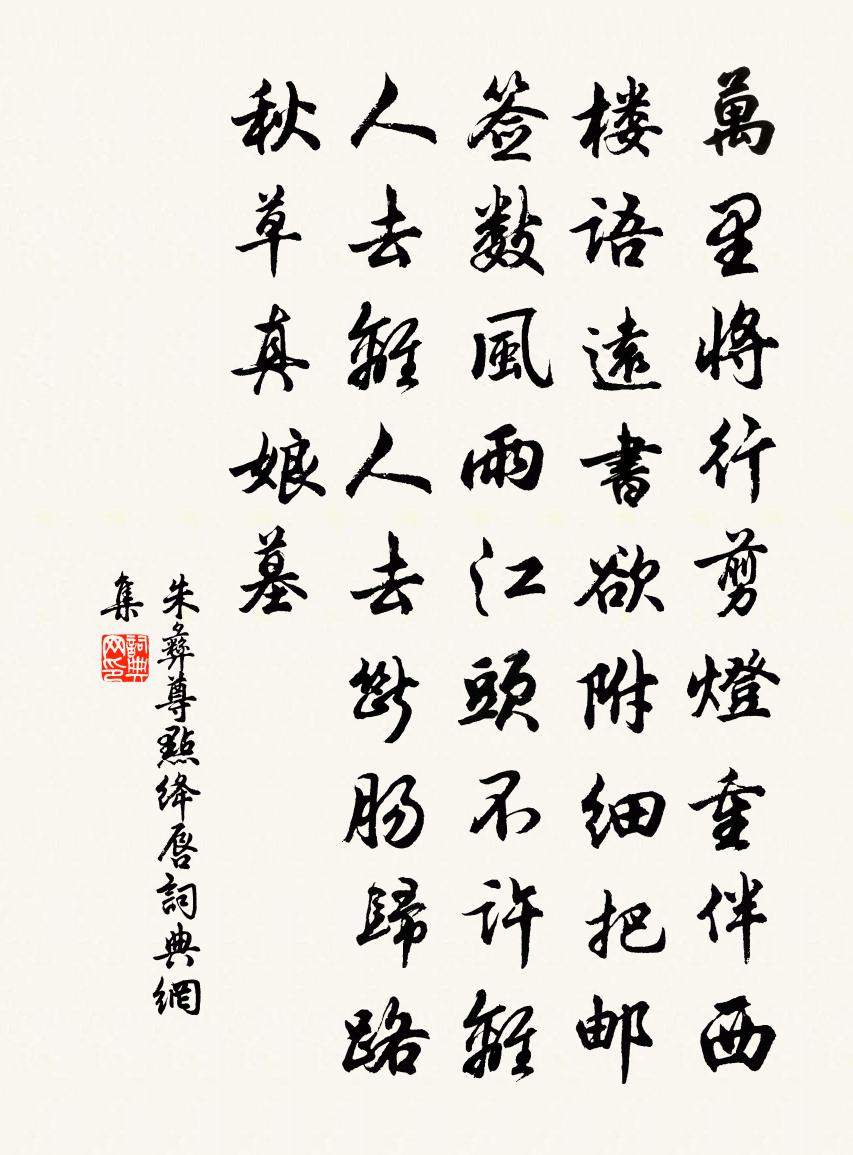 萬里將行剪燈重伴西
楼語遠書欲附細把邮
签數風雨江頭不許離
人去離人去断肠歸路
秋草真娘墓
朱彝尊點绛唇詞典網
集
詞典
网印